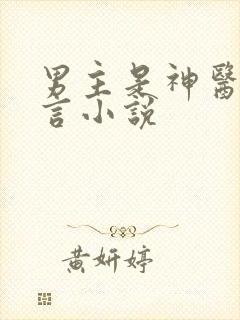 男主是神醫
言小說
黃妍婷